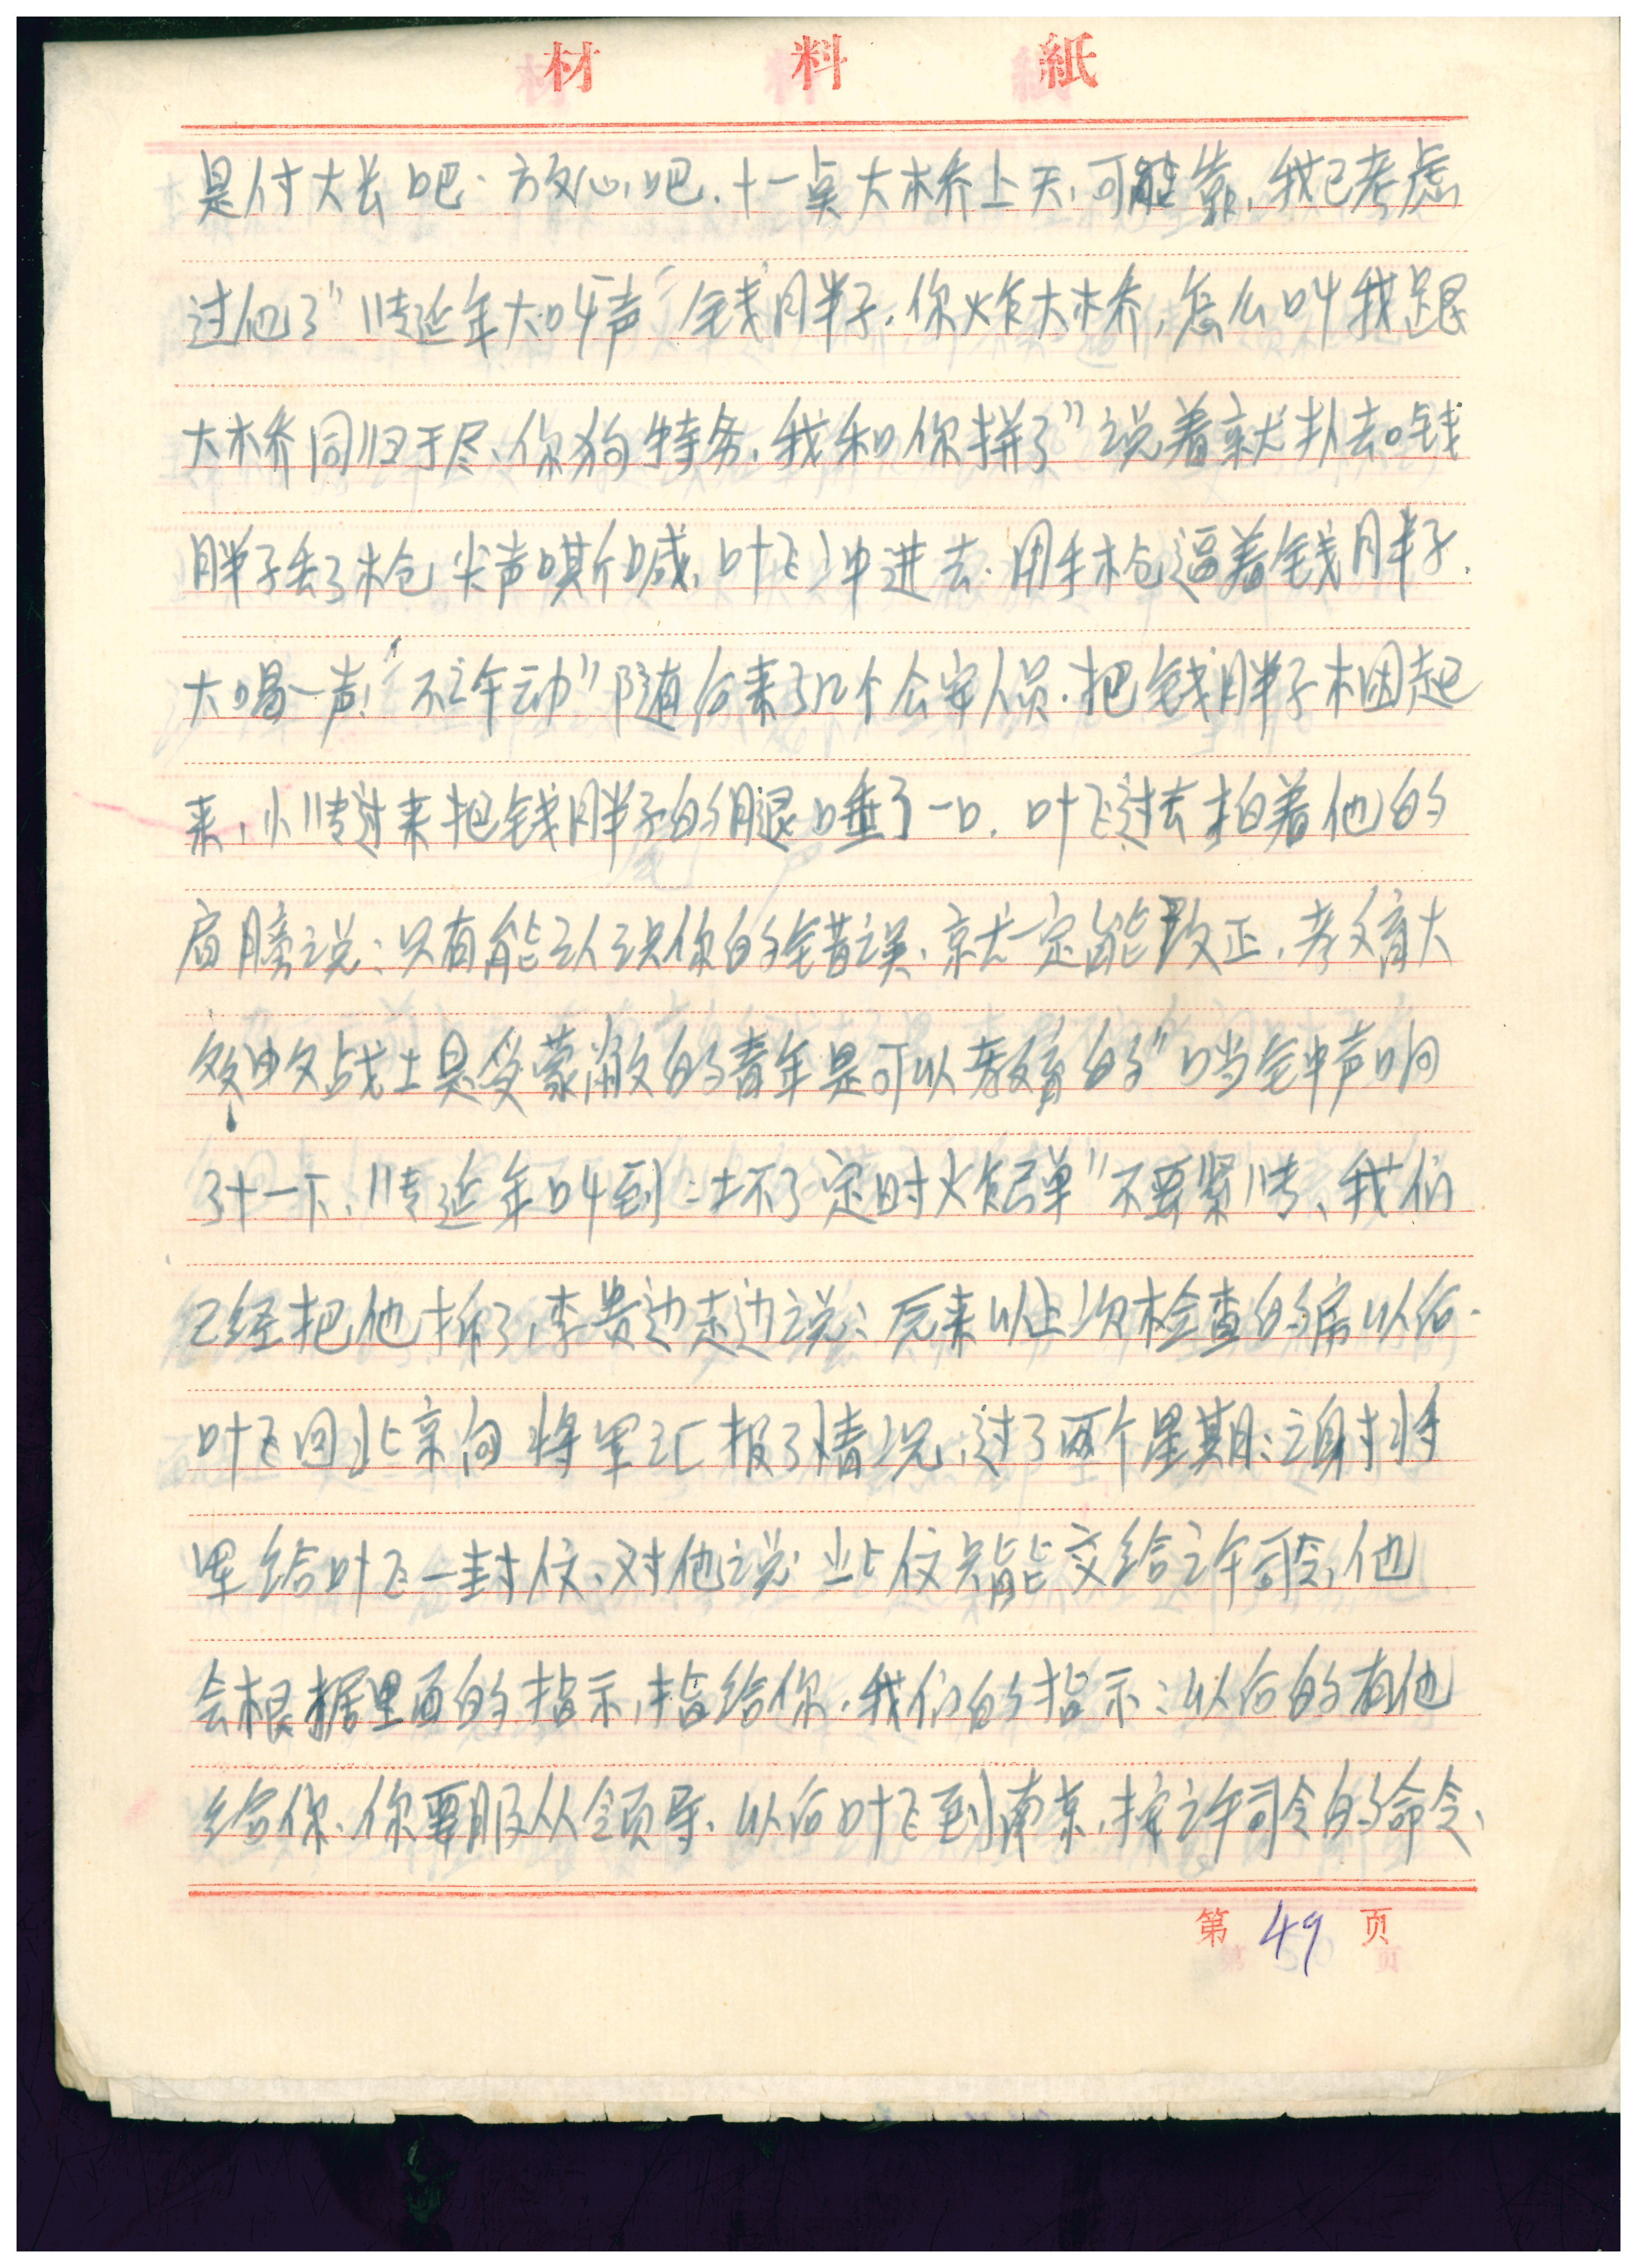 材料紙
是付大长吧.放心吧.十一点大桥上天,可能靠,我已考虑
过他了"小转近年大叫声"钱胖子,你炸大桥,怎么叫我跟
大桥同归于尽、你狗特务,我和你拼了"说着就扑去。钱
胖子丢了枪尖声嘶喊,叶飞冲进去.用手枪逼着钱胖子.
大喝一声!"不许动"随后来了几个公安人员.把钱胖子捆起
来,小 过来把钱胖子的腿唾了一口.叶飞过去拍着他的
肩膀说:只有能认识你的错误,就一定能改正.教育大
多 战士是受蒙蔽的青年是可以教育的"当钟声响
了十一下、 近年叫到:坏了定时炸弹"不要紧 、我们
已经把他拆了,李贵边走边说:原来以上次检查的病以后.
叶飞回北京向将军汇报了情况,过了两个星期:谢将
军给叶飞一封信、对他说:此信只能交给许司令,他
会根据里面的指示,指给你.我们的指示:以后的有他
给你、你要服从领导、以后叶飞到南京,按许司令的命令、
第49页